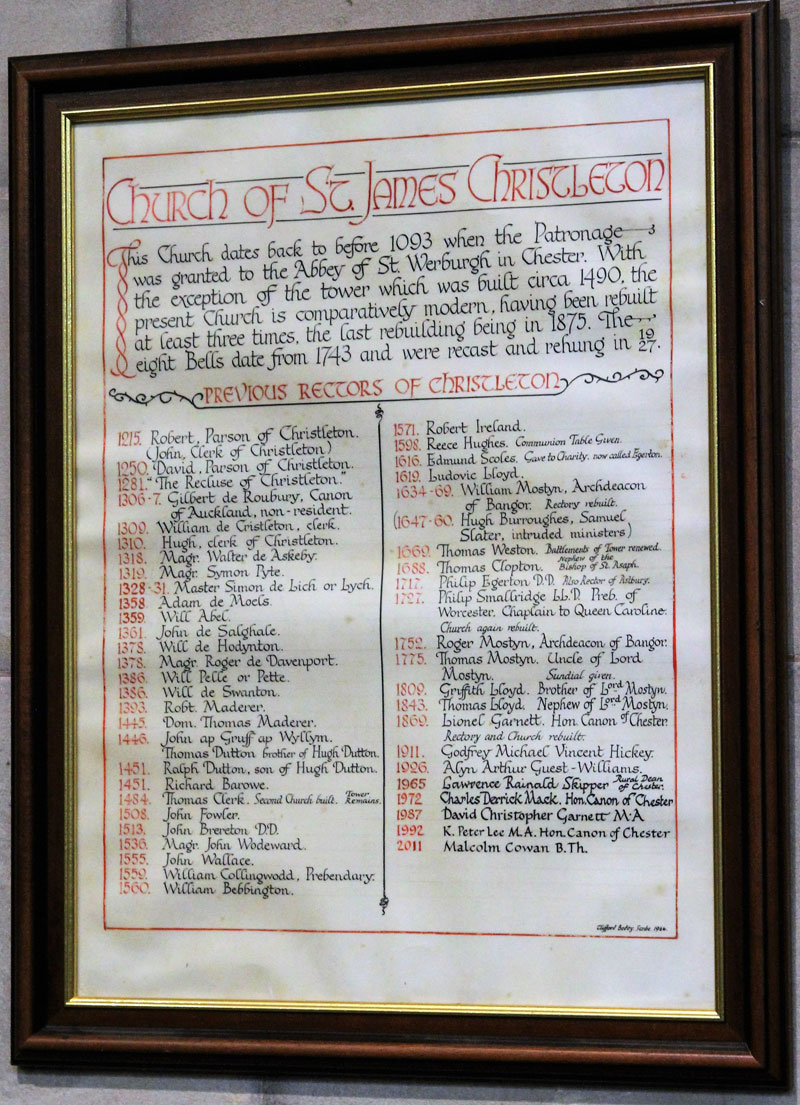 Church of St. James Christleton
This Church dates back to before 1093 when the Patronage
was granted to the Abbey of St. Werburgh in Chester. With
the exception of the tower which was built circa 1490, the
present Church is comparatively modern, having been rebuilt
at least three times, the last rebuilding being in 1875. The
eight Bells date from 1743 and were recast and rehung in 1927.
PREVIOUS RECTORS OF CHRISTLETON
1215. Robert, Parson of Christleton.
(John, Clerk of Christleton)
1250. David, Parson of Christleton.
1281. "The Recluse of Christleton."
1306-7. Gilbert de Roubury, Canon
of Auckland, non-resident.
1309. William de Cristleton, clerk.
1310. Hugh, clerk of Christleton.
1318. Magr. Walter de Askeby.
1319. Magr. Symon Pyte.
1328-31. Master Simon de Lich or Lych.
1358. Adam de Moels.
1359. Will Abel.
1361. John de Salghale.
1378. Will de Hodynton.
1378. Magr. Roger de Davenport.
1386. Will Pelle or Pette.
1386. Will de Swanton.
1393. Robt. Maderer.
1445. Dom. Thomas Maderer.
1446. John ap Gruff ap Wyllym.
Thomas Dutton brother of Hugh Dutton.
1451. Ralph Dutton, son of Hugh Dutton.
1451. Richard Barowe.
1484. Thomas Clerk. Second Church built. Tower Remains.
1508. John Fowler.
1513. John Brereton D.D.
1536. Magr. John Wodeward.
1555. John Wallace.
1559. William Collingwodd, Prebendary.
1560. William Bebbington.
1571. Robert Ireland.
1598. Reece Hughes. Communion Table Given.
1616. Edmund Scoles. Gave to Charity, now called Egerton.
1619. Ludovic Lloyd.
1634-69. William Mostyn, Archdeacon
of Bangor. Rectory rebuilt.
(1647-60. Hugh Burroughes, Samuel
Slater, intruded ministers)
1669. Thomas Weston. Battlements of Tower renewed.
1688. Thomas Clopton. Nephew of the Bishop of St. Asaph.
1717. Philip Egerton D.D. Also Rector of Astbury.
1727. Philip Smallridge LL.D. Preb. of
Worcester. Chaplain to Queen Caroline.
Church again rebuilt.
1752. Roger Mostyn, Archdeacon of Bangor.
1775. Thomas Mostyn. Uncle of Lord
Mostyn. Sundial given.
1809. Griffith Lloyd. Brother of Lord Mostyn.
1843. Thomas Lloyd. Nephew of Lord Mostyn.
1869. Lionel Garnett. Hon. Canon of Chester.
Rectory and Church rebuilt.
1911. Godfrey Michael Vincent Hickey.
1926. Alyn Arthur Guest-Williams.
1965 Lawrence Rainald Skipper Rural Dean of Chester.
1972 Charles Derrick Mack. Hon. Canon of Chester
1987 David Christopher Garnett M.A
1992 K. Peter Lee M.A. Hon. Canon of Chester
2011 Malcolm Cowan B.Th.
Clifford